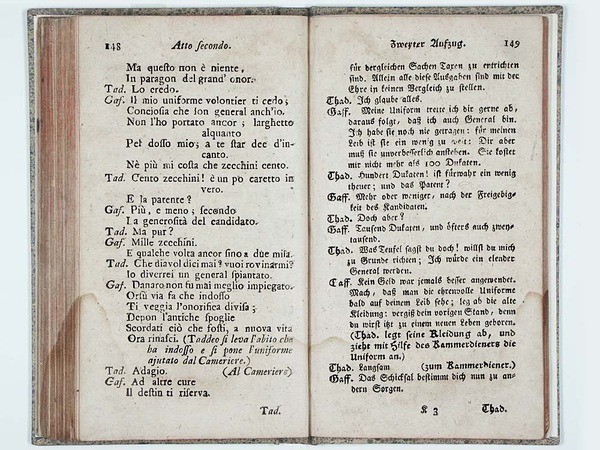 148 Atto secondo.
Ma questo non è niente,
In paragon del grand' onor.
Tad. Lo credo.
Gaf. Il mio uniforme volontier ti cedo;
Conciosia che son general anch'io.
Non l'ho portato ancor; larghetto
alquanto
Pel dosso mio; a te star dee d'in-
canto.
Nè più mi costa che zecchini cento.
Tad. Cento zecchini! è un pò caretto in
vero.
E la parente?
Gaf. Più, e meno; secondo
La generosità del candidato.
Tad. Ma pur?
Gaf. Mille zecchini.
E qualche volta ancor sino a due mila.
Tad. Che diavol dici mai? vuoi rovinarmi?
Io diverrei un general spiantato.
Gaf. Danaro non fu mai meglio impiegato.
Orsù via fa che indosso
Ti veggia l'onorifica divisa;
Depon l'antiche spoglie
Scordati ciò che fosti, a nuova vita
Ora rinasci. (Taddeo si leva l'abito che
ha indosso e si pone l'uniforme
ajutato dal Cameriere.)
Tad. Adagio. (Al Cameriere)
Gaf. Ad altre cure
Il destin ti riserva.
Tad.
Zweyter Aufzug. 149
für dergleichen Sachen Taxen zu entrichten
sind. Allein alle diese Ausgaben sind mit der
Ehre in keinen Vergleich zu stellen.
Thad. Ich glaube alles.
Gaff. Meine Uniform trette ich dir gerne ab,
daraus folgt, daß ich auch General bin.
Ich habe sie noch nie getragen: für meinen
Leib ist sie ein wenig zu weit: Dir aber
muß sie unverbesserlich anstehen. Sie kostet
mir nicht mehr als 100 Dukaten.
Thad. Hundert Dukaten! ist fürwahr ein wenig
theuer; und das Patent?
Gaff. Mehr oder weniger, nach der Freigebig-
keit des Kandidaten.
Thad. Doch aber?
Gaff. Tausend Dukaten, und öfters auch zwey-
tausend.
Thad. Was Teufel sagst du doch! willst du mich
zu Grunde richten; Ich würde ein elender
General werden.
Gaff. Kein Geld war jemals besser angewendet.
Mach, daß man die ehrenvolle Uniforme
bald auf deinem Leib sehe; leg ab die alte
Kleidung: vergiß dein vorigen Stand, denn
du wirst itzt zu einem neuen Leben geboren.
(Thad. legt seine Kleidung ab, und
ziehet mit Hilfe des Kammerdieners die
Uniform an.)
Thad. Langsam (zum Kammerdiener.)
Gaff. Das Schicksal bestimmt dich nun zu an-
dern Sorgen.
K 3 Thad.